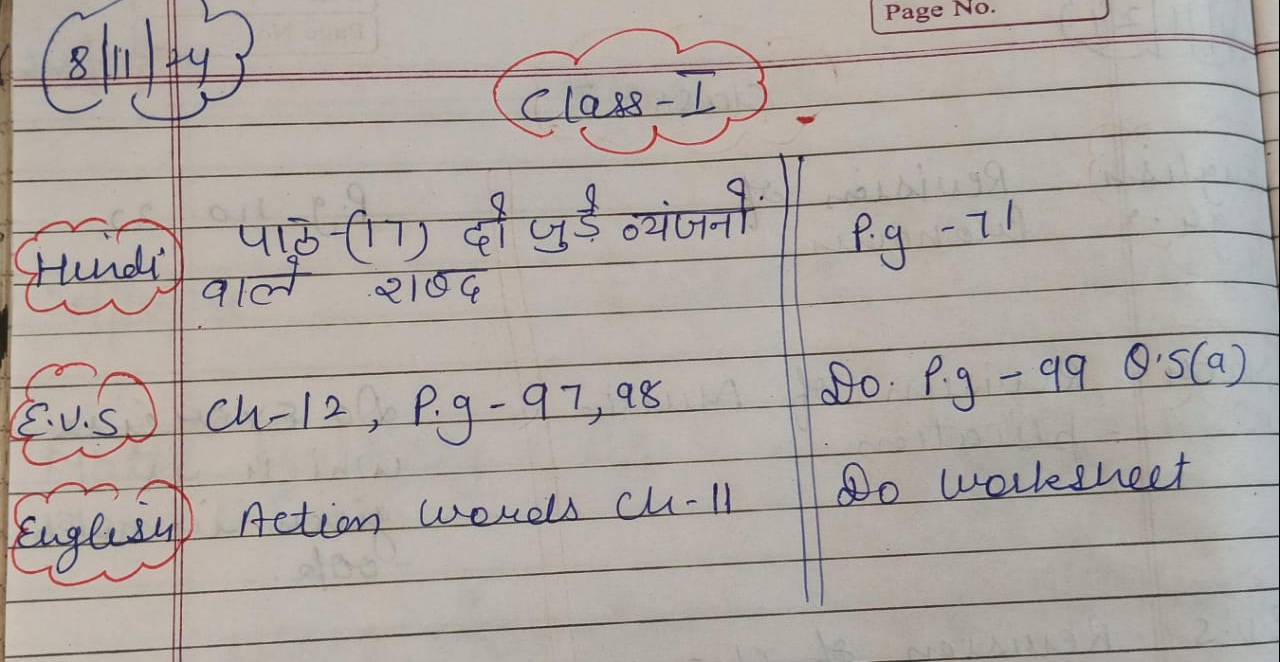 Page No.
8/11/24
Class-I
Hindi पाठ-(17) दो जुड़े व्यंजनों P.g -71
वाले शब्द
E.V.S Ch-12, P.g-97,98 Do. P.g -99 Q.5(a)
English Action words Ch-11 Do worksheet